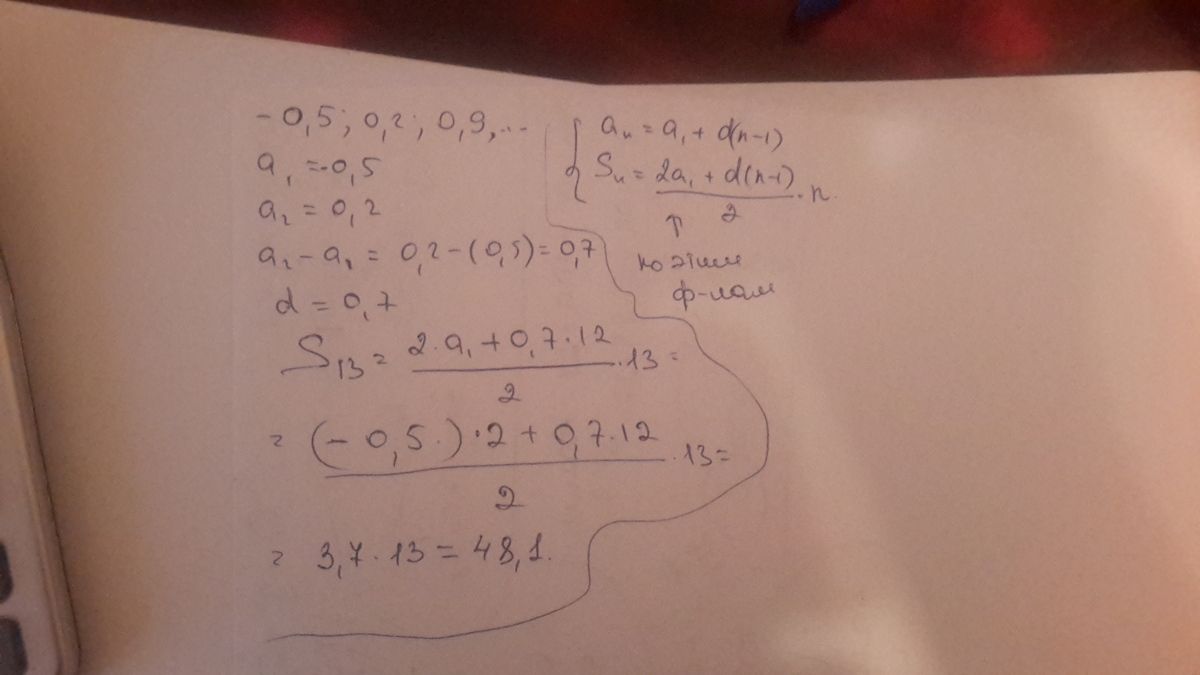 -0,5; 0,2; 0,9,...
a₁ = -0,5
a₂ = 0,2
a₂ - a₁ = 0,2 - (0,5) = 0,7
d = 0,7
S₁₃ = (2·a₁ + 0,7·12)/2 · 13 =
= ((-0,5.)·2 + 0,7·12)/2 · 13 =
= 3,7·13 = 48,1.
{ aₙ = a₁ + d(n-1)
Sₙ = (2a₁ + d(n-1))/2 · n.
↑
по этим
ф-лам